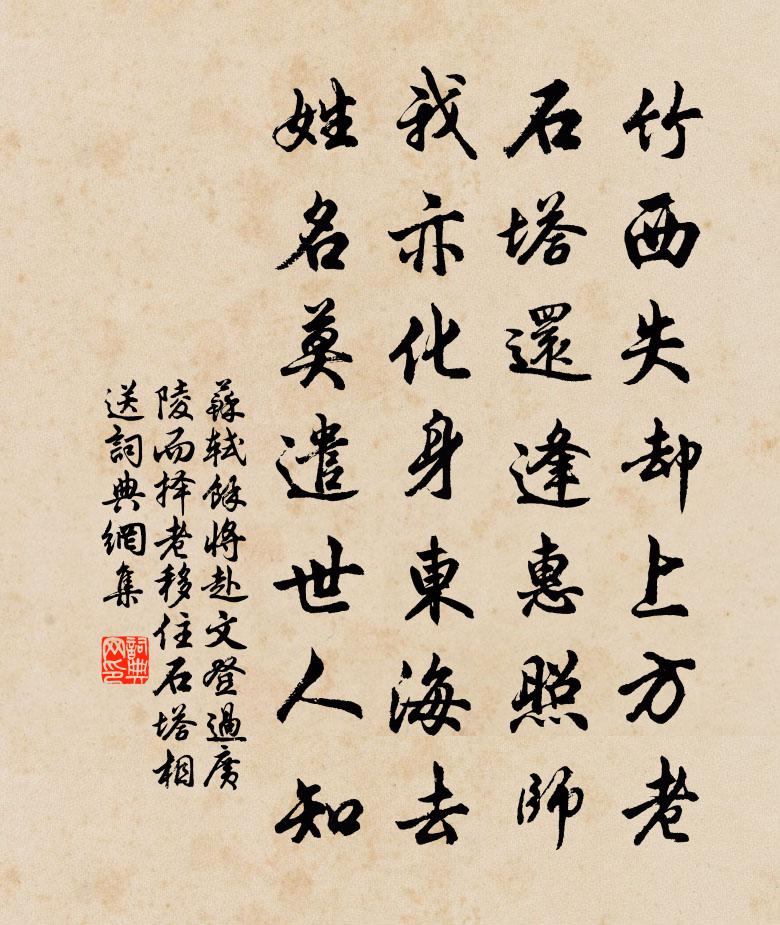 竹西失却上方老
石塔還逢惠照師
我亦化身東海去
姓名莫遣世人知
蘇軾餘將赴文登過廣
陵而择老移住石塔相
送詞典網集
詞典网印